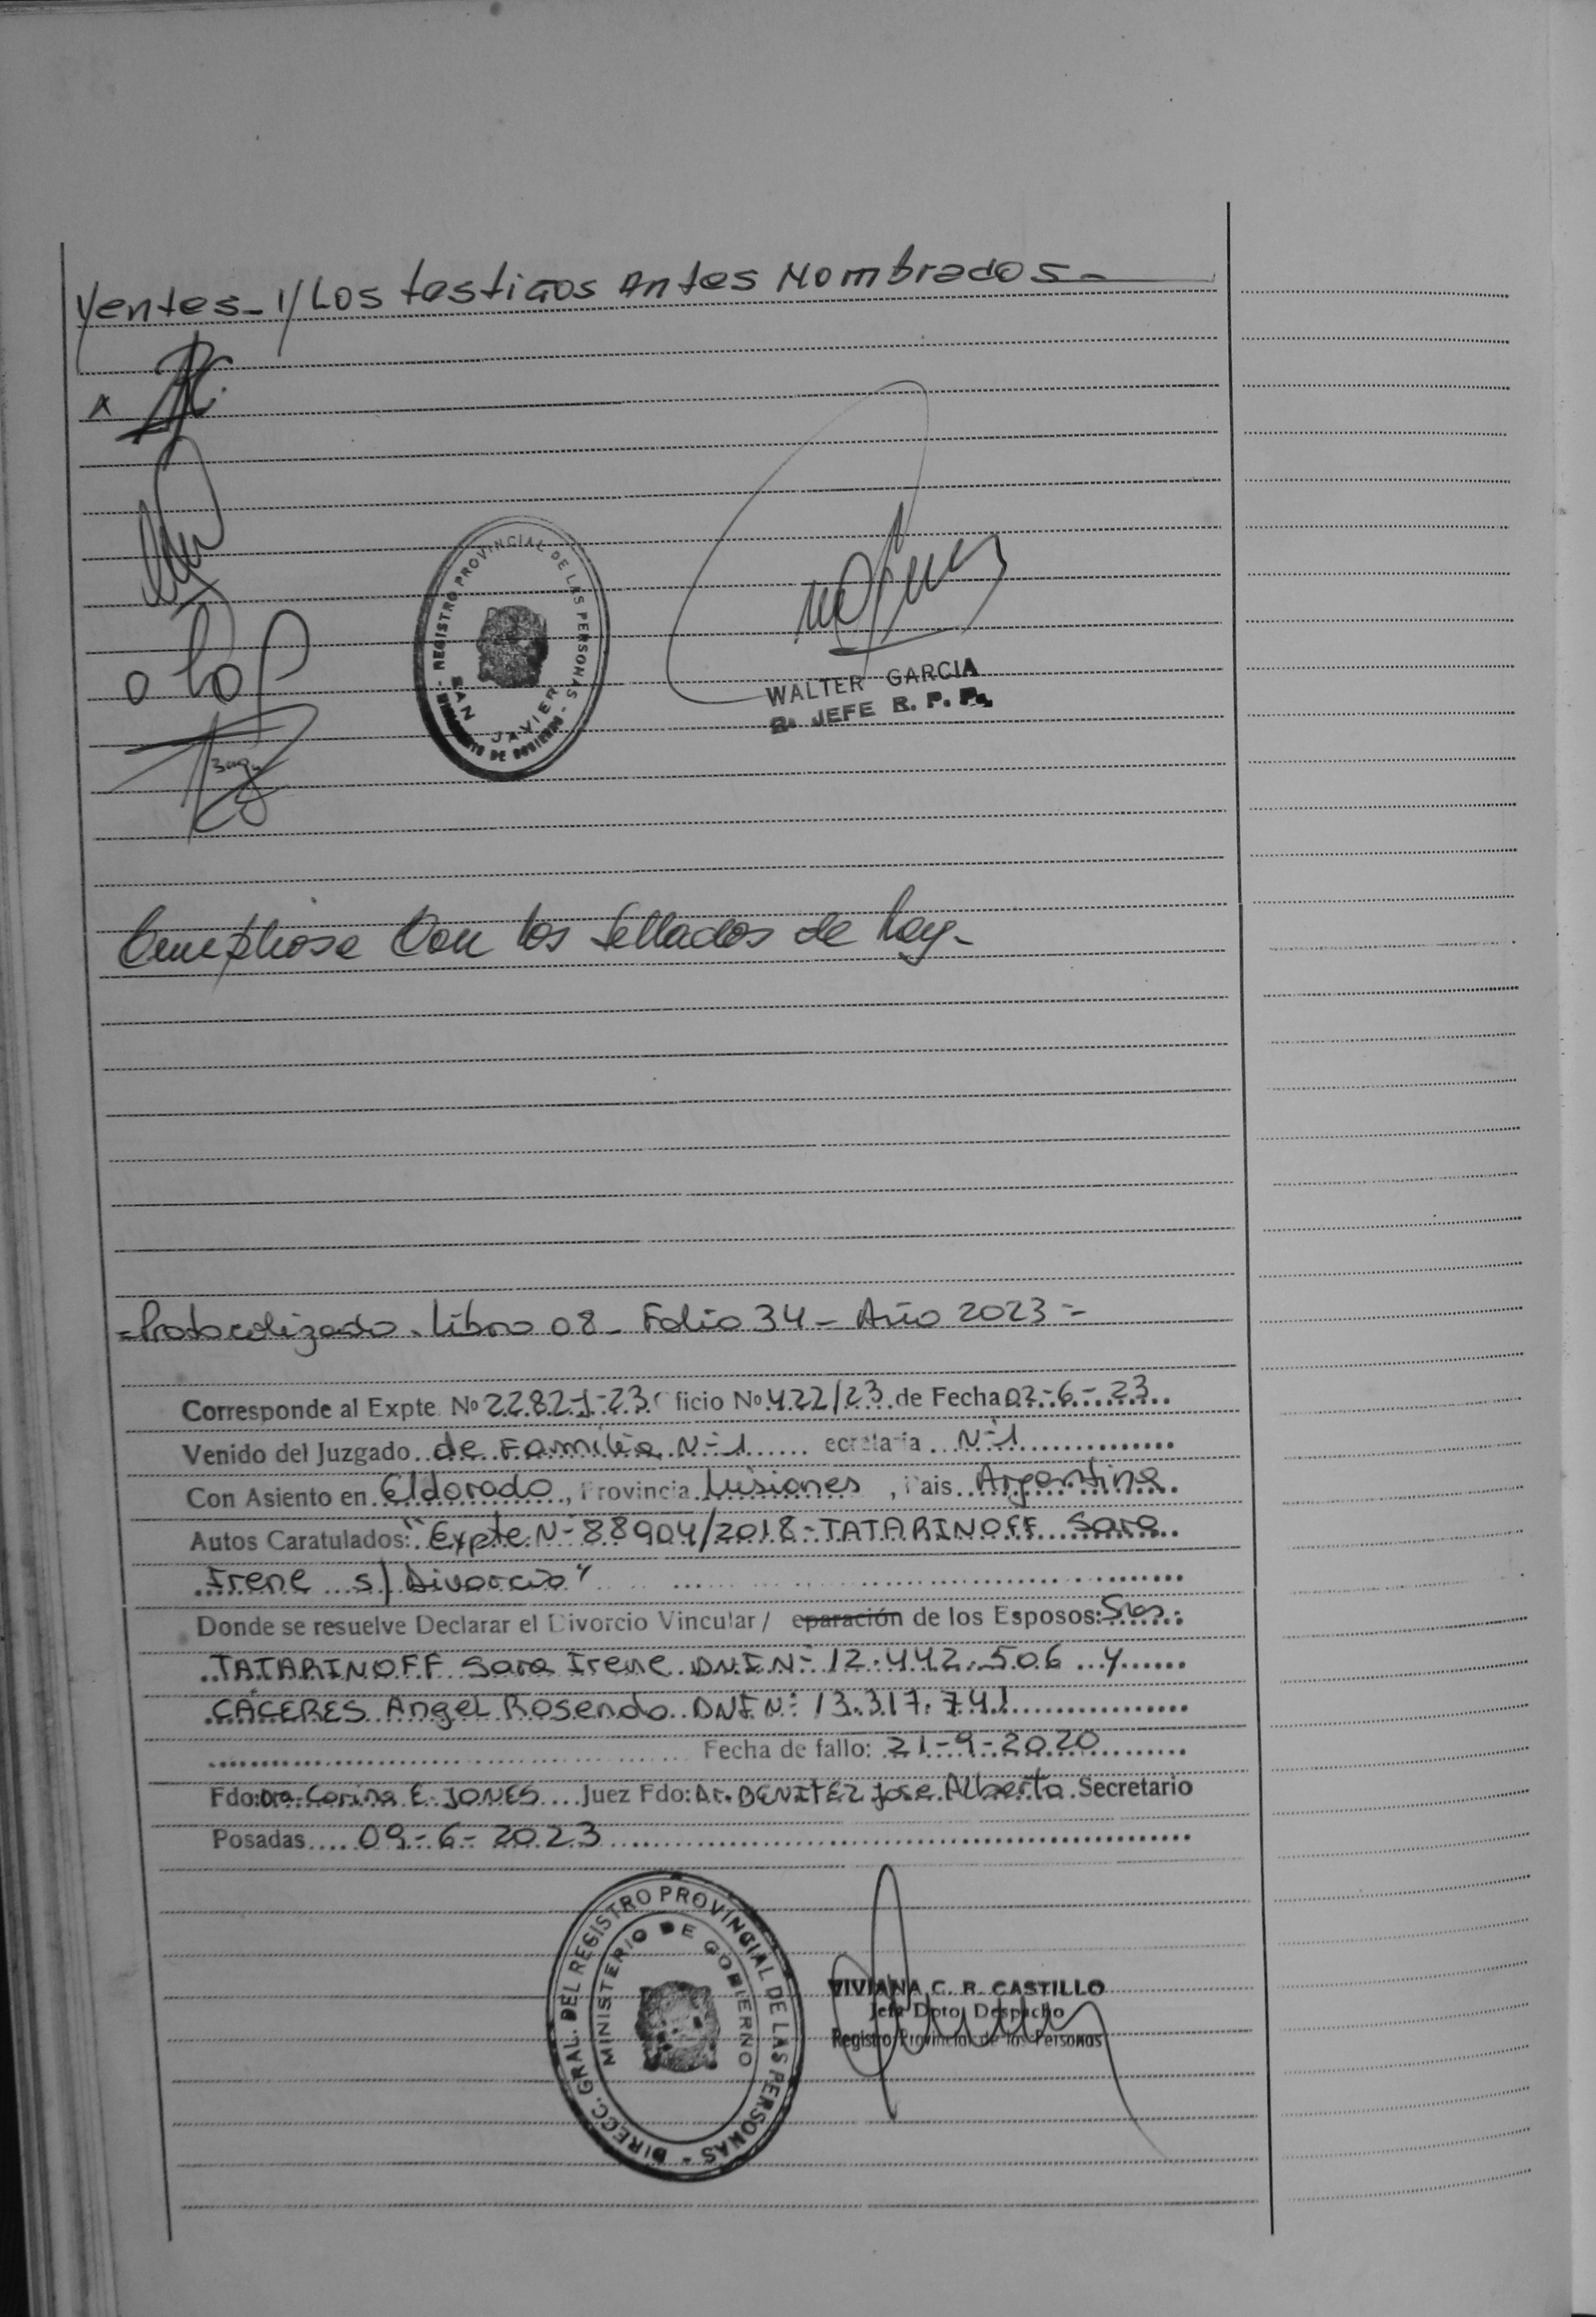 yentes - y Los testigos Antes Nombrados -
REGISTRO PROVINCIAL DE LAS PERSONAS
SAN JAVIER
DE GOBIERNO
WALTER GARCIA
JEFE R. P. P.
Cumpliose Con los Sellados de Ley -
= Protocolizado. Libro 08 - Folio 34 - Año 2023 =
Corresponde al Expte Nº 2282-J-23 ficio Nº 422/23 de Fecha 02-6-23
Venido del Juzgado de Familia Nº 1 ecretaria Nº 1
Con Asiento en Eldorado, Provincia Misiones, Pais Argentina
Autos Caratulados: "Expte Nº 88904/2018 - TATARINOFF Sara
Irene s/ Divorcio"
Donde se resuelve Declarar el Divorcio Vincular / eparación de los Esposos: Sres.
TATARINOFF Sara Irene DNI Nº 12.442.506 y
CÁCERES Angel Rosendo DNI Nº 13.317.741
Fecha de fallo: 21-9-2020
Fdo: Dra. Corina E. JONES Juez Fdo: Dr. BENITEZ Jose Alberto Secretario
Posadas 09-6-2023
DIRECC. GRAL. DEL REGISTRO PROVINCIAL DE LAS PERSONAS
MINISTERIO DE GOBIERNO
VIVIANA C. R. CASTILLO
Jefa Dpto. Despacho
Registro Provincial de las Personas